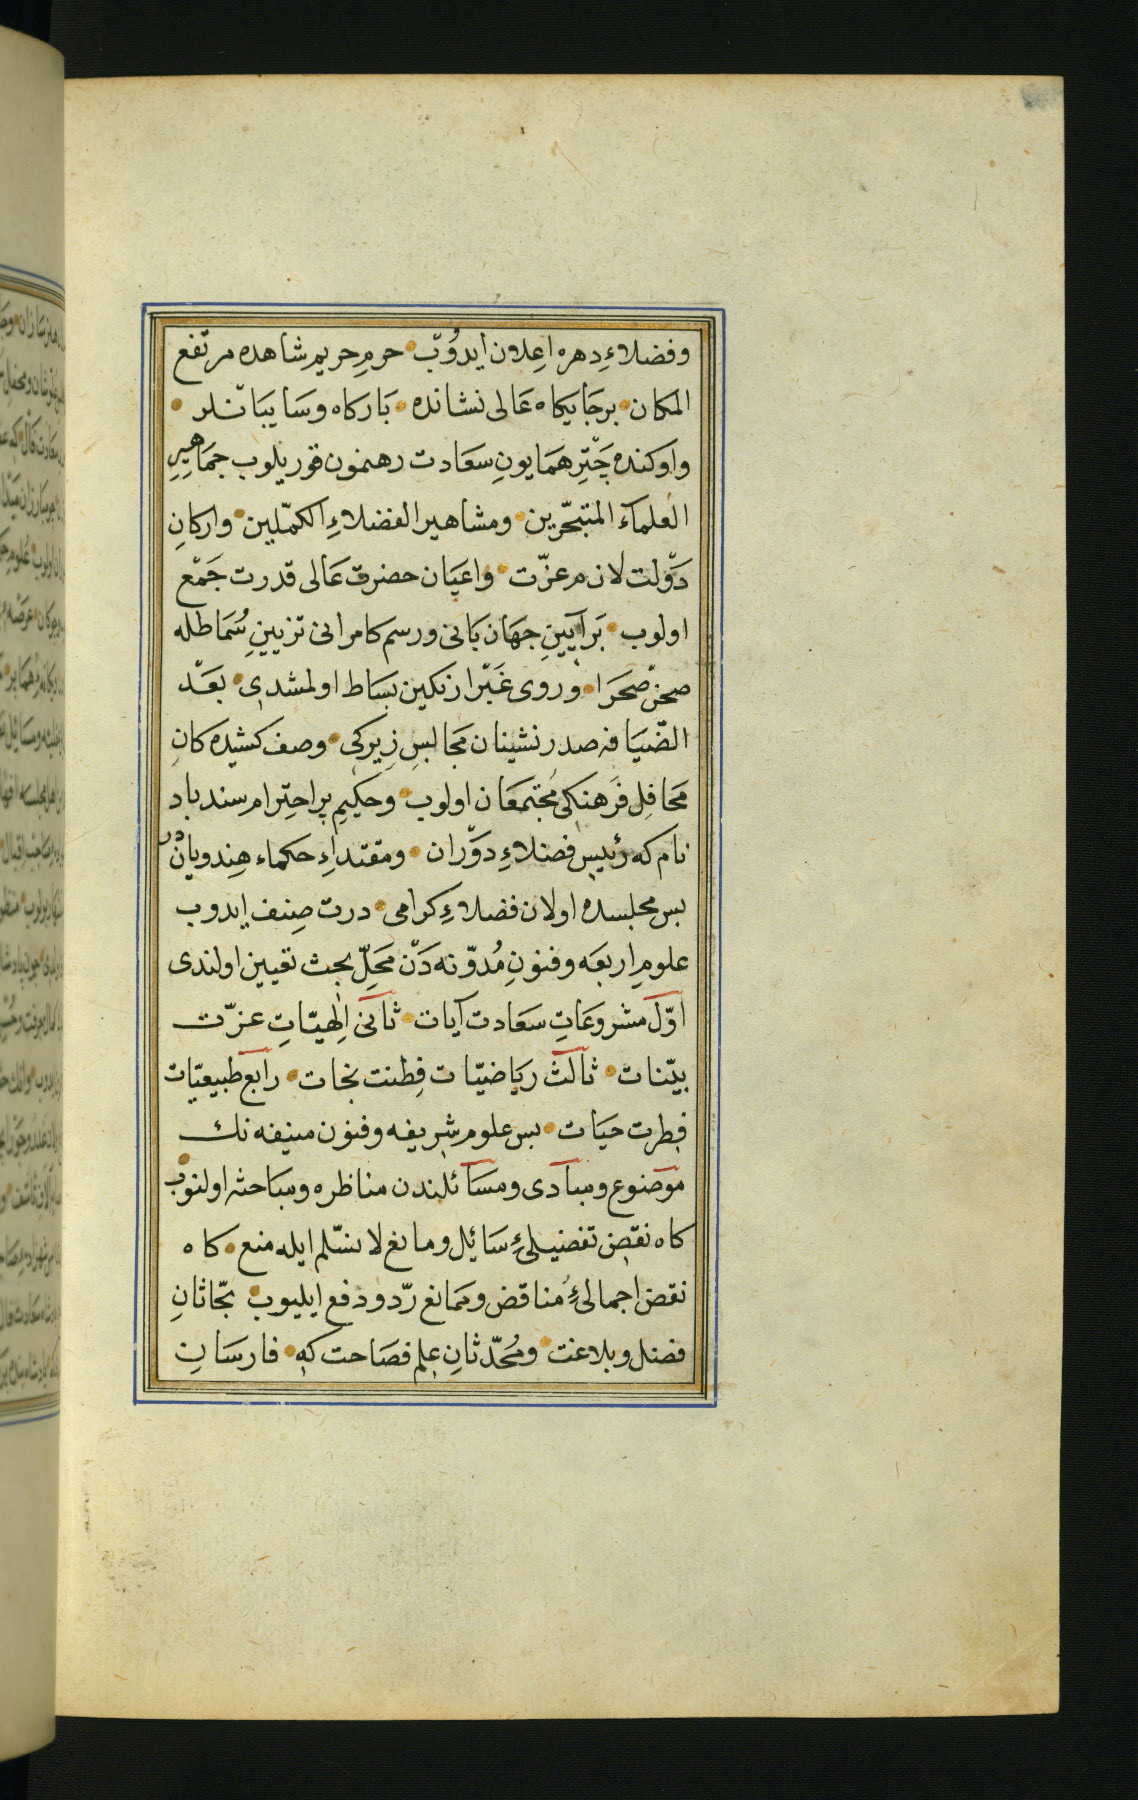 وفضلاءِ دهره اعِلان ايدوُبّ حرمِ حريم شاهده مرتفع
المكان برجايكاه عَالى نشانده بَاركاه وسَايبانْلر
واوكنده چَتْرِ همَايونِ سعَادت رهنمون قوريلوب جمَاهيرِ
العلمآء المتبحّرين ومشاهير الفضلاءِ الكمّلين واركانِ
دَوّلت لازم عزّت واعيَان حضرت عَالى قدرت جَمْع
اولوب بَرآيينِ جهَان بَانى ورسم كامرانى تزيينِ سُمَاطله
صحنْ صحَرَا وروى غَبْرا رنكين بسَاط اولمشدى بَعَدْ
الضّيَافه صدر نشينان مَجالسِ زِيركى وصف كشيده كانِ
مَحَافِل فَرهنكى مُجتمعَان اولوب وحكيمِ پراحتِرام سندباد
نام كه رئيس فضلاءِ دوّران ومقتداءِ حكماء هِندويان در
بس مجلسده اولان فضلاءِ كرامى درت صِنف ايدوب
علومِ اربعَه وفنونِ مُدوّنه دَن مَحَلّ بحث تعيين اولندى
اوّل مشروعَاتِ سعَادت آيات ثانى اِلٰهيّاتِ عزّت
بيّنات ثالث ريَاضيّات فِطنت نجات رابع طبيعيّات
فطرت حيَات بس علوم شريفه وفنون منيفه نك
موضوع ومبآدى ومسَآئلندن مناظره ومبَاحثه اولنوب
كاه نقض تفضيلىءِ سَائل ومانع لا نسّلم ايله منع كاه
نقض اجمالىءِ مُناقض وممَانع رّد ودفع ايليوب بحّاثانِ
فضل وبلاغت ومُحدّثانِ علم فصَاحت كه فارسَانِ